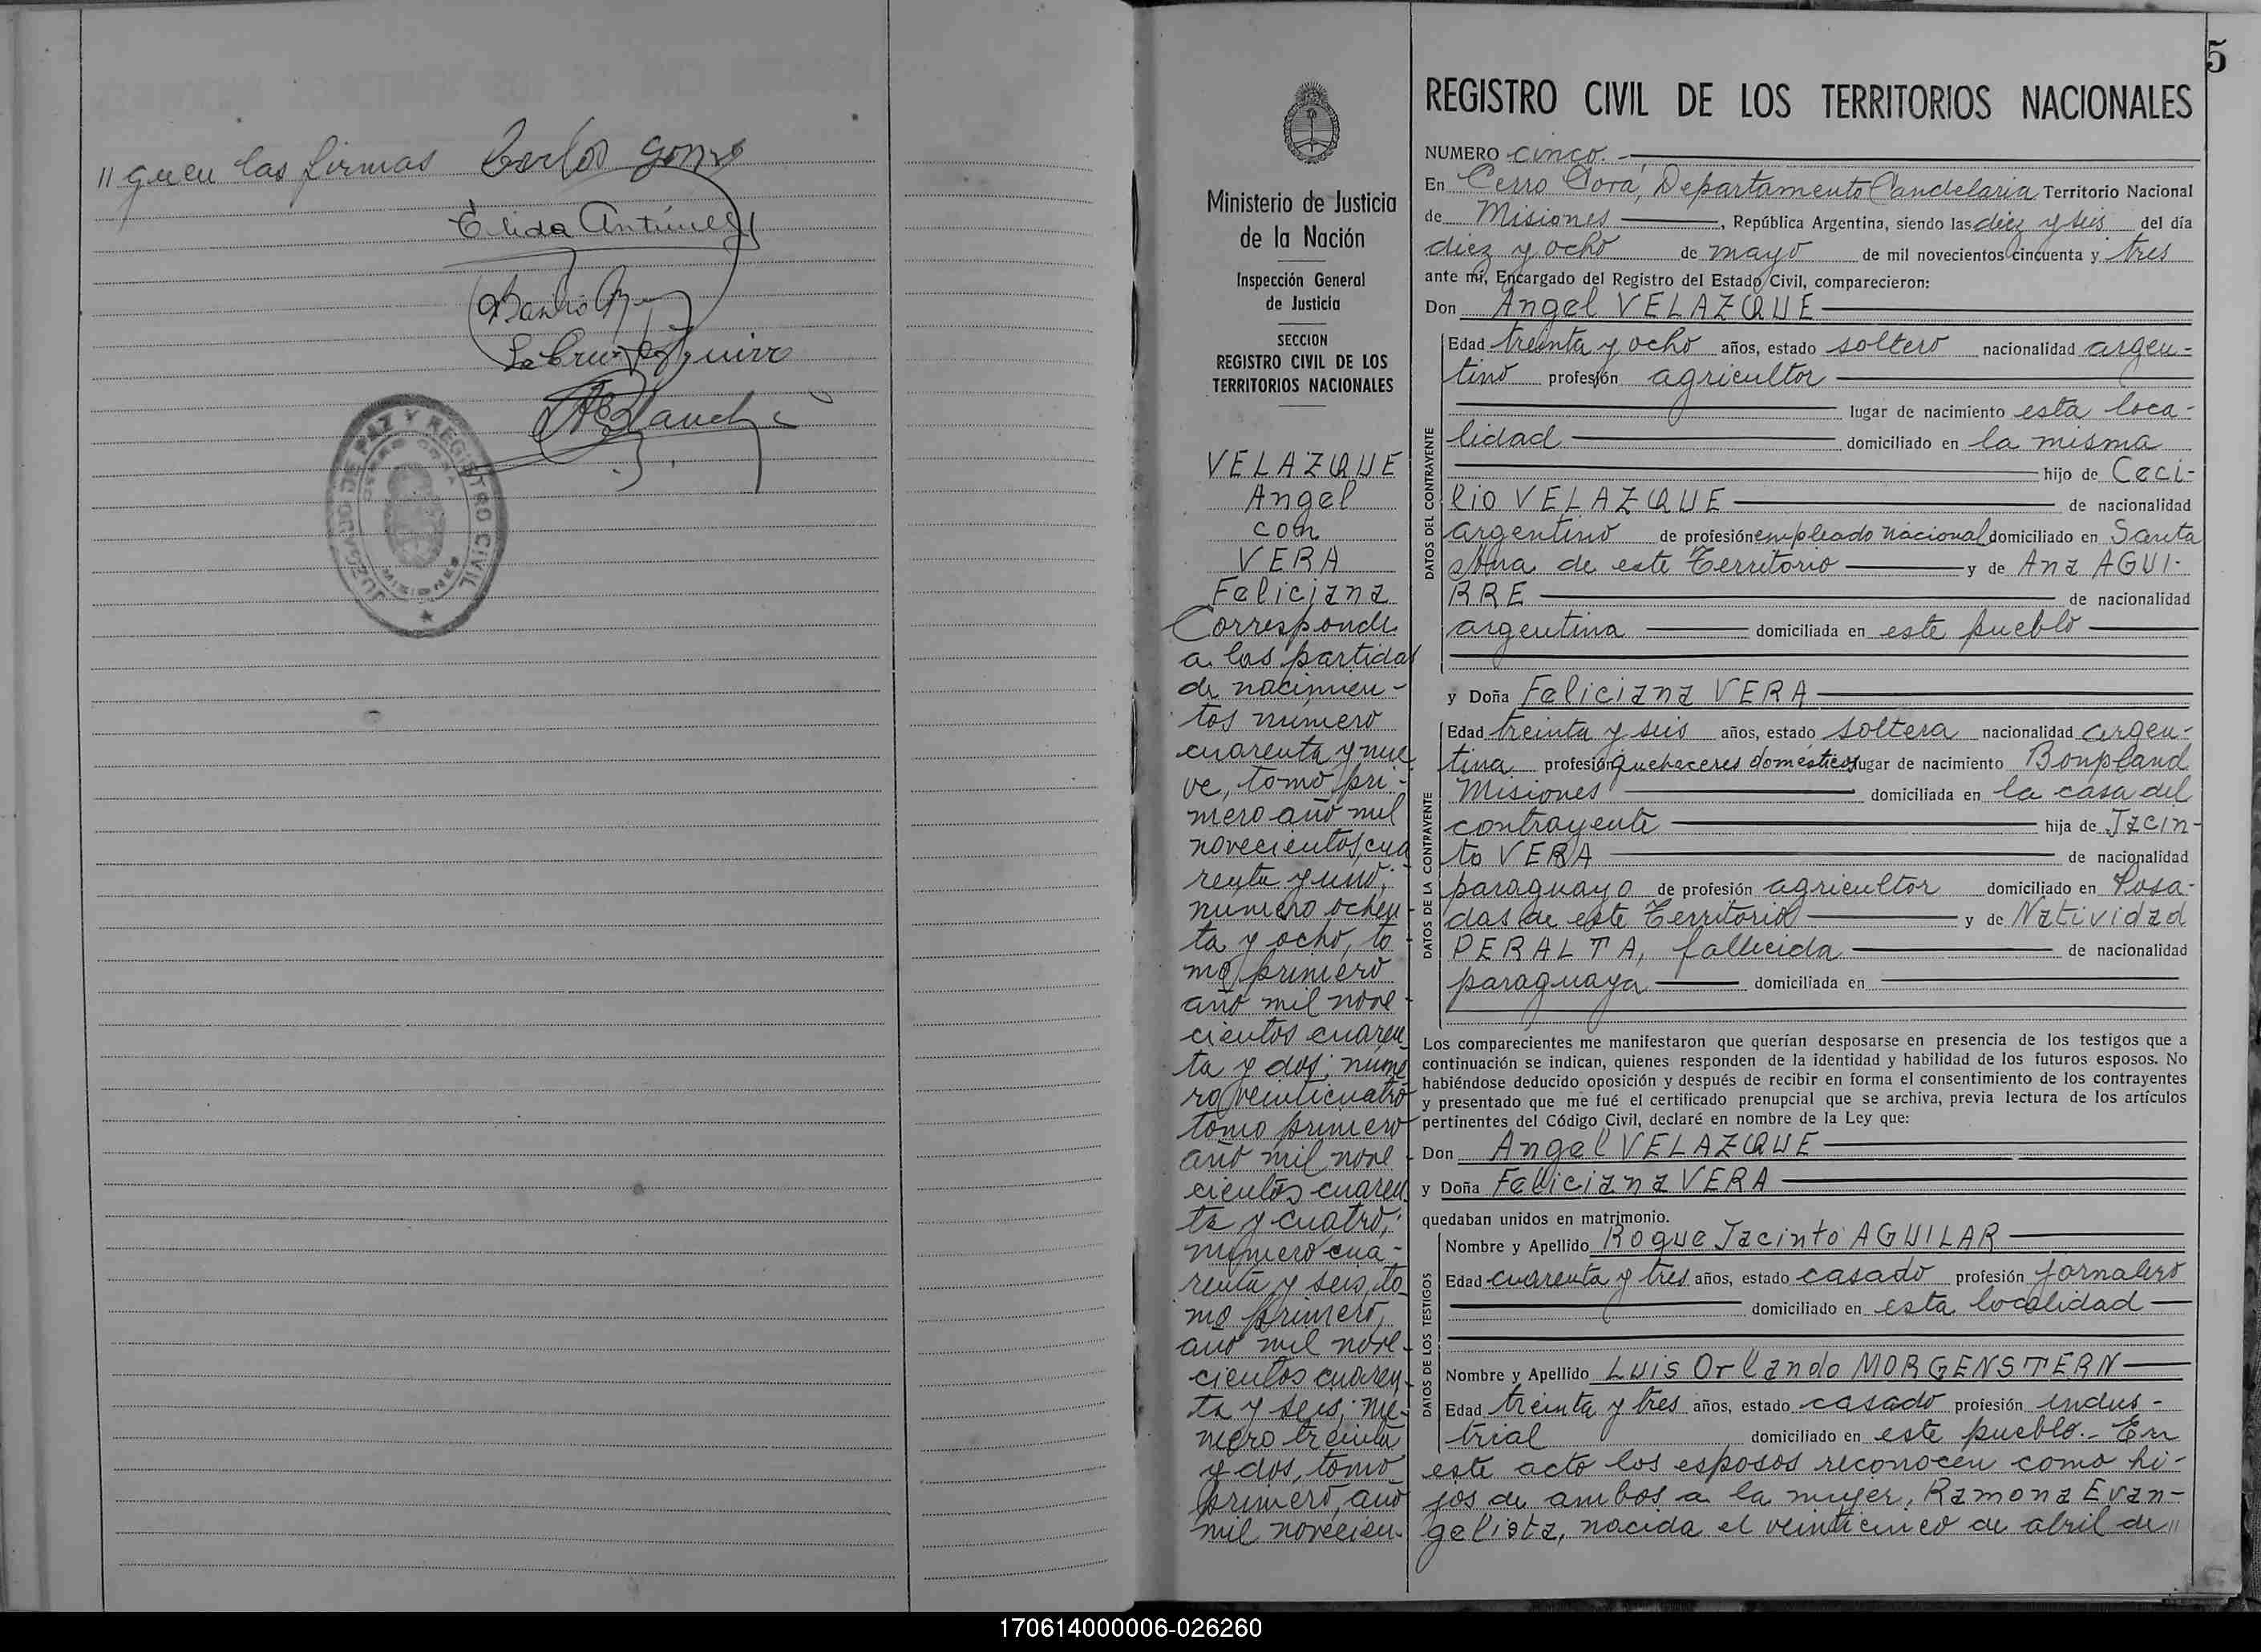 " guen las firmas Carlos Gomez
Élida Antúnez
La Cruz
JUZGADO DE PAZ Y REGISTRO CIVIL
CERRO CORA
MISIONES
5
REGISTRO CIVIL DE LOS TERRITORIOS NACIONALES
Ministerio de Justicia
de la Nación
Inspección General
de Justicia
SECCION
REGISTRO CIVIL DE LOS
TERRITORIOS NACIONALES
VELAZQUE
Angel
con
VERA
Feliciana
Corresponde
a las partidas
de nacimien-
tos número
cuarenta y nue
ve, tomo pri-
mero año mil
novecientos cua
renta y uno;
número ochen
ta y ocho, to
mo primero
año mil nove-
cientos cuaren
ta y dos; núme
ro veinticuatro
tomo primero
año mil nove
cientos cuaren
ta y cuatro;
número cua-
renta y seis, to
mo primero,
año mil nove-
cientos cuaren-
ta y seis; nú-
mero treinta
y dos, tomo
primero, año
mil novecien-
NUMERO cinco.-
En Cerro Corá, Departamento Candelaria Territorio Nacional
de Misiones, República Argentina, siendo las diez y seis del día
diez y ocho de mayo de mil novecientos cincuenta y tres
ante mí, Encargado del Registro del Estado Civil, comparecieron:
Don Angel VELAZQUE
DATOS DEL CONTRAYENTE
Edad treinta y ocho años, estado soltero nacionalidad argen-
tino profesión agricultor
lugar de nacimiento esta loca-
lidad domiciliado en la misma
hijo de Ceci-
lio VELAZQUE de nacionalidad
argentino de profesión empleado nacional domiciliado en Santa
Ana de este Territorio y de Ana AGUI-
RRE de nacionalidad
argentina domiciliada en este pueblo
y Doña Feliciana VERA
DATOS DE LA CONTRAYENTE
Edad treinta y seis años, estado soltera nacionalidad argen-
tina profesión quehaceres domésticos lugar de nacimiento Bonpland
Misiones domiciliada en la casa del
contrayente hija de Jacin-
to VERA de nacionalidad
paraguayo de profesión agricultor domiciliado en Posa-
das de este Territorio y de Natividad
PERALTA, fallecida de nacionalidad
paraguaya domiciliada en
Los comparecientes me manifestaron que querían desposarse en presencia de los testigos que a
continuación se indican, quienes responden de la identidad y habilidad de los futuros esposos. No
habiéndose deducido oposición y después de recibir en forma el consentimiento de los contrayentes
y presentado que me fué el certificado prenupcial que se archiva, previa lectura de los artículos
pertinentes del Código Civil, declaré en nombre de la Ley que:
Don Angel VELAZQUE
y Doña Feliciana VERA
quedaban unidos en matrimonio.
DATOS DE LOS TESTIGOS
Nombre y Apellido Roque Jacinto AGUILAR
Edad cuarenta y tres años, estado casado profesión jornalero
domiciliado en esta localidad
Nombre y Apellido Luis Orlando MORGENSTERN
Edad treinta y tres años, estado casado profesión indus-
trial domiciliado en este pueblo.- En
este acto los esposos reconocen como hi-
jos de ambos a la mujer, Ramona Evan-
gelista, nacida el veinticinco de abril de "
170614000006-026260